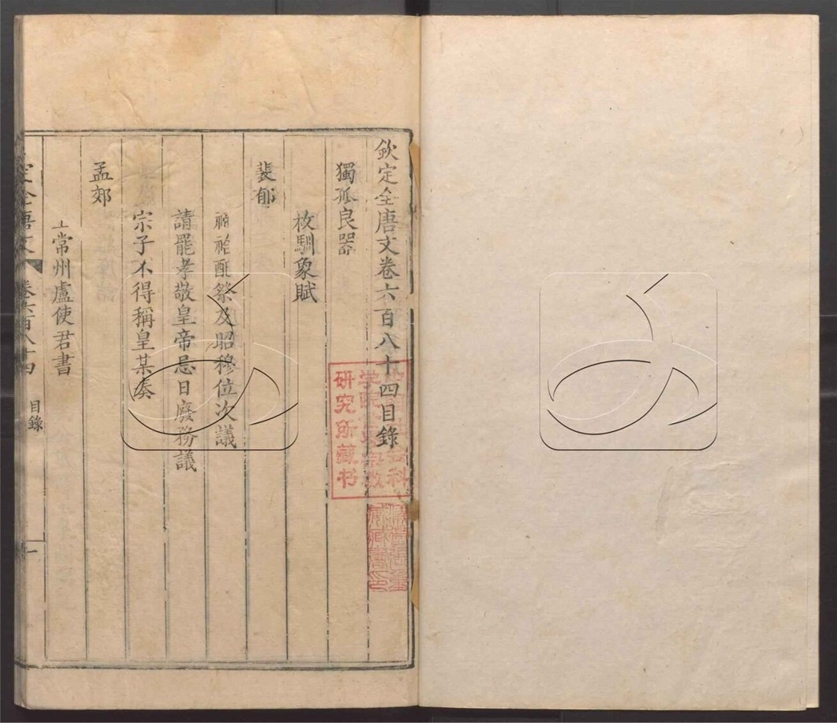 欽定全唐文卷六百八十四目錄
獨孤良器
枚馴象賦
裴郁
禘祫酣祭及昭穆位次議
請罷孝敬皇帝忌日廢務議
宗子不得稱皇某奏
孟郊
上常州盧使君書
定全唐文 卷六百八十四 目錄 一
研究所藏书